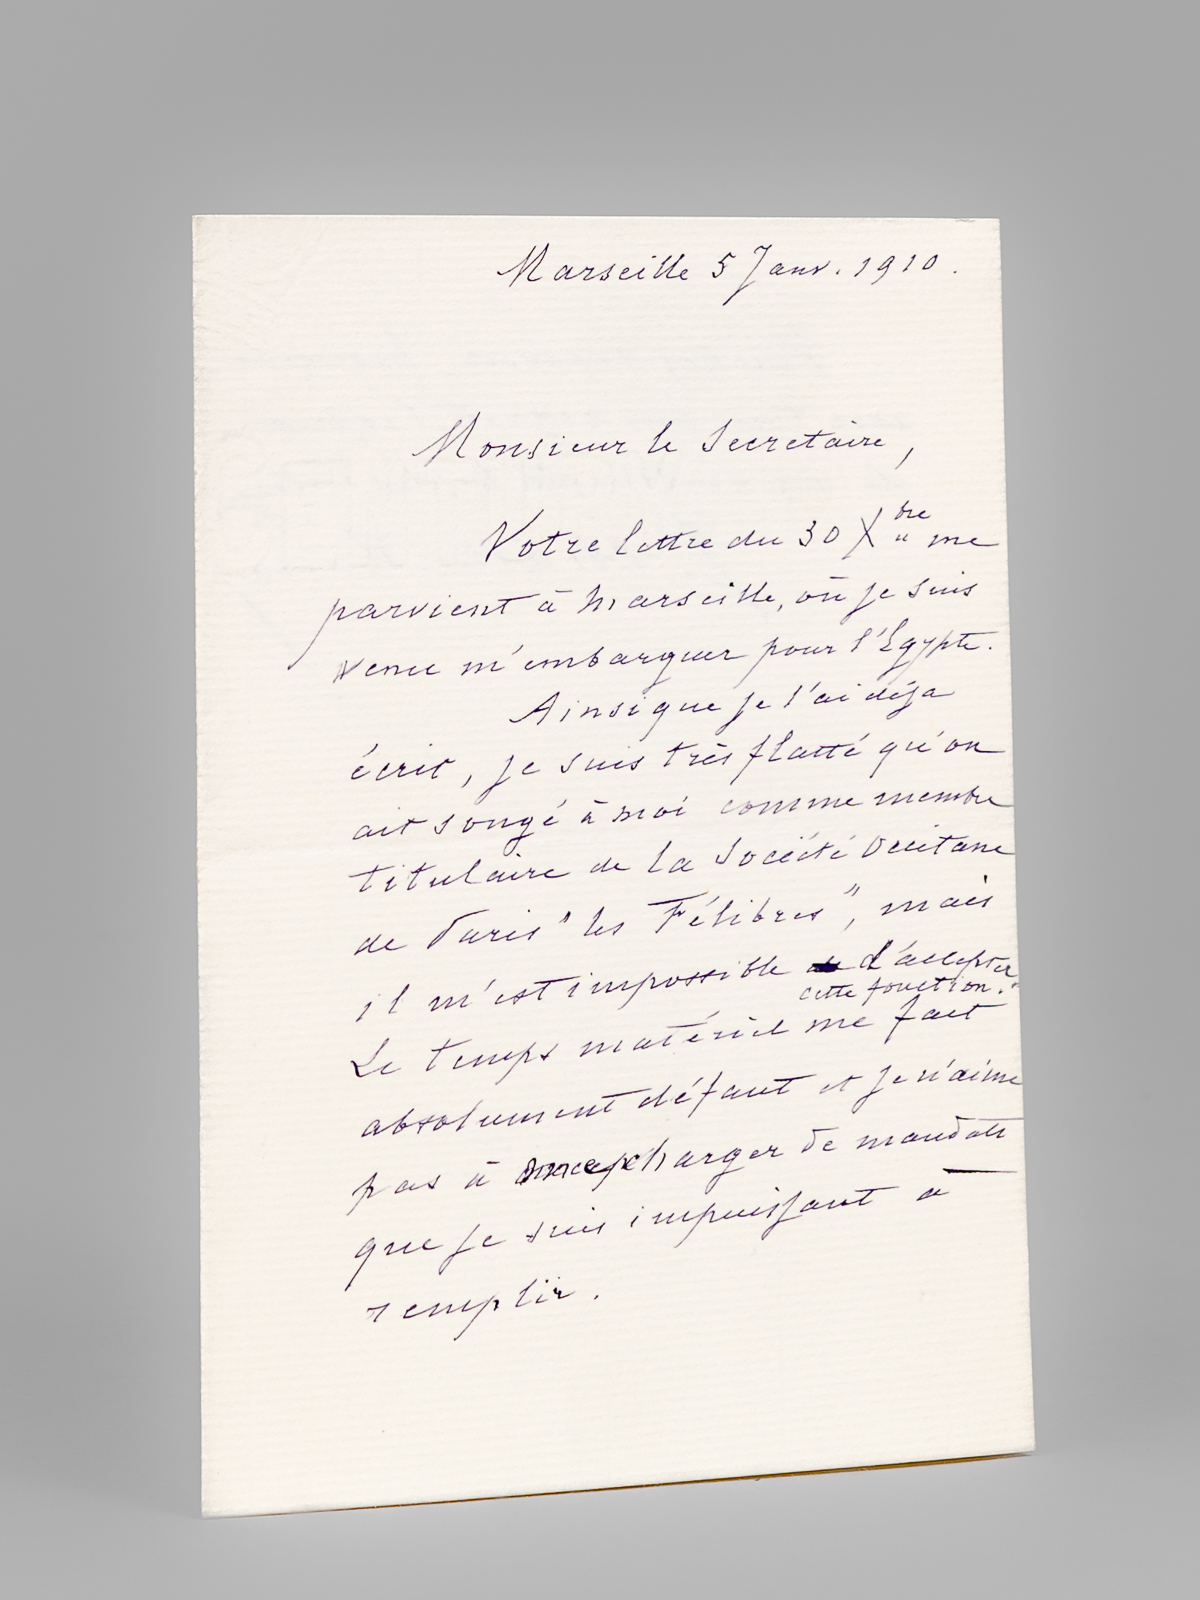 Marseille 5 Janv. 1910.
Monsieur le Secretaire,
Votre lettre du 30 Xbre me
parvient à Marseille, où je suis
venu m'embarquer pour l'Egypte.
Ainsi que je l'ai déja
écrit, je suis très flatté qu'on
ait songé à moi comme membre
titulaire de la Société Occitane
de Paris "les Félibres", mais
il m'est impossible d'accepter
cette fonction.
Le temps matériel me fait
absolument défaut et je n'aime
pas à charger de mandats
que je suis impuissant a
remplir.